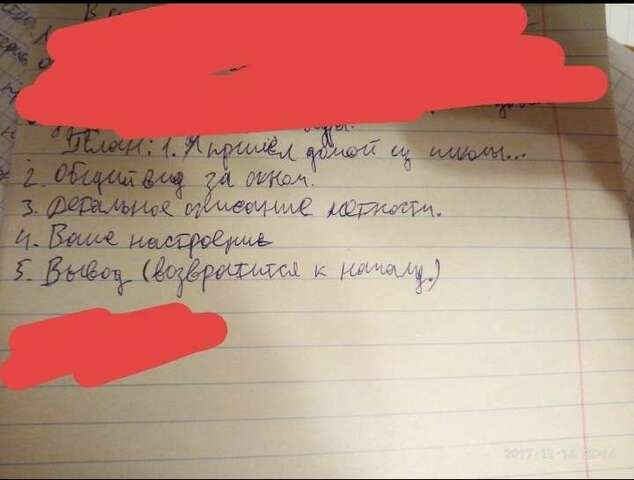 В
План: 1. Я пришёл домой из школы...
2. Общий вид за окном.
3. Детальное описание местности.
4. Ваше настроение
5. Вывод (возвратится к началу.)
2017-12-14